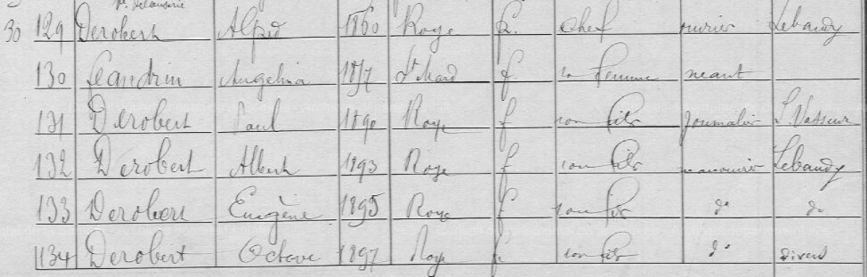 30 129 Derobert Alfred 1860 Roye f. chef ouvrier Lebaudy
130 Leandrin Angelina St Mard f sa femme neant
131 Derobert Paul 1890 Roye f son fils journalier
132 Derobert Albert 1893 Roye f son fils Lebaudy
133 Derobert Eugène 1895 Roye f son fils do do
134 Derobert Octave 1897 Roye f son fils do divers